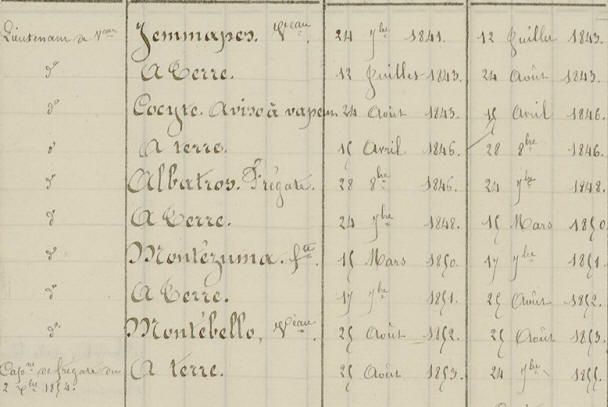 Lieutenant de Veau Jemmapes. Veau. 24 7bre 1841. 12 Juillet 1843.
do A Terre. 12 Juillet 1843. 24 Août 1843.
do Cocyte. Aviso à vapeur 24 Août 1843. 15 Avril 1846.
do A terre. 15 Avril 1846. 28 8bre 1846.
do Albatros. Frégate. 28 8bre 1846. 24 7bre 1848.
do A Terre. 24 7bre 1848. 15 Mars 1850.
do Montézuma. fte. 15 Mars 1850. 17 7bre 1851.
do A Terre. 17 7bre 1851. 25 Août 1852.
do Montébello, Veau. 25 Août 1852. 25 Août 1853.
Capne de frégate du A terre. 25 Août 1853. 24 7bre 1855.
2 Xbre 1854.